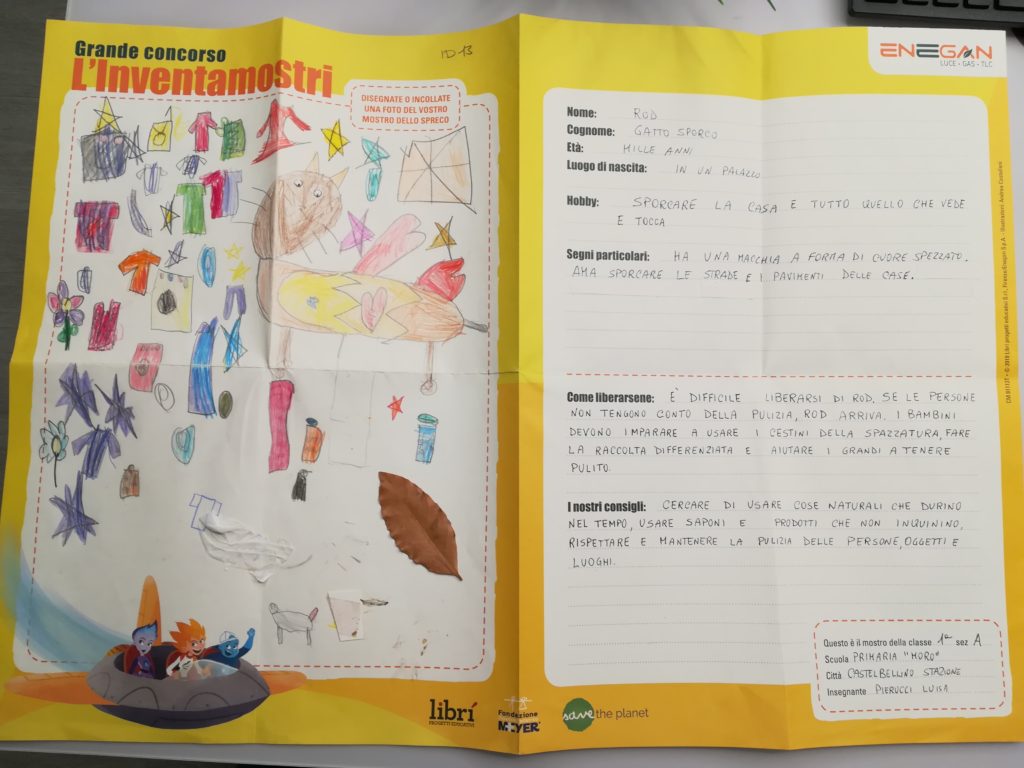 Grande concorso
L'Inventamostri
ID 13
DISEGNATE O INCOLLATE
UNA FOTO DEL VOSTRO
MOSTRO DELLO SPRECO
ENEGAN
LUCE - GAS - TLC
Nome: ROD
Cognome: GATTO SPORCO
Età: MILLE ANNI
Luogo di nascita: IN UN PALAZZO
Hobby: SPORCARE LA CASA E TUTTO QUELLO CHE VEDE
E TOCCA
Segni particolari: HA UNA MACCHIA A FORMA DI CUORE SPEZZATO.
AMA SPORCARE LE STRADE E I PAVIMENTI DELLE CASE.
Come liberarsene: È DIFFICILE LIBERARSI DI ROD. SE LE PERSONE
NON TENGONO CONTO DELLA PULIZIA, ROD ARRIVA. I BAMBINI
DEVONO IMPARARE A USARE I CESTINI DELLA SPAZZATURA, FARE
LA RACCOLTA DIFFERENZIATA E AIUTARE I GRANDI A TENERE
PULITO.
I nostri consigli: CERCARE DI USARE COSE NATURALI CHE DURINO
NEL TEMPO, USARE SAPONI E PRODOTTI CHE NON INQUININO,
RISPETTARE E MANTENERE LA PULIZIA DELLE PERSONE, OGGETTI E
LUOGHI.
Questo è il mostro della classe 1ª sez A
Scuola PRIMARIA "MORO"
Città CASTELBELLINO STAZIONE
Insegnante PIERUCCI LUISA
librì
PROGETTI EDUCATIVI
Fondazione
MEYER
save the planet